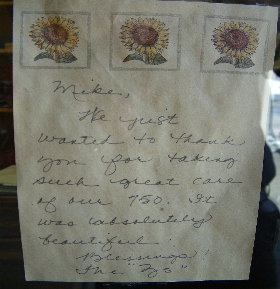 Mike,
We just
wanted to thank
you for taking
such great care
of our 750. It
was absolutely
beautiful!
Blessings!
The "Zs"